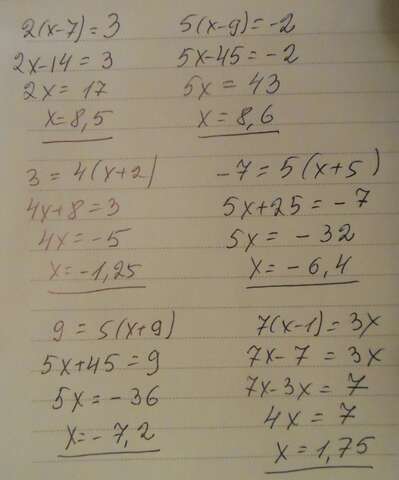 2(x-7)=3
2x-14=3
2x=17
x=8,5
5(x-9)=-2
5x-45=-2
5x=43
x=8,6
3=4(x+2)
4x+8=3
4x=-5
x=-1,25
-7=5(x+5)
5x+25=-7
5x=-32
x=-6,4
9=5(x+9)
5x+45=9
5x=-36
x=-7,2
7(x-1)=3x
7x-7=3x
7x-3x=7
4x=7
x=1,75